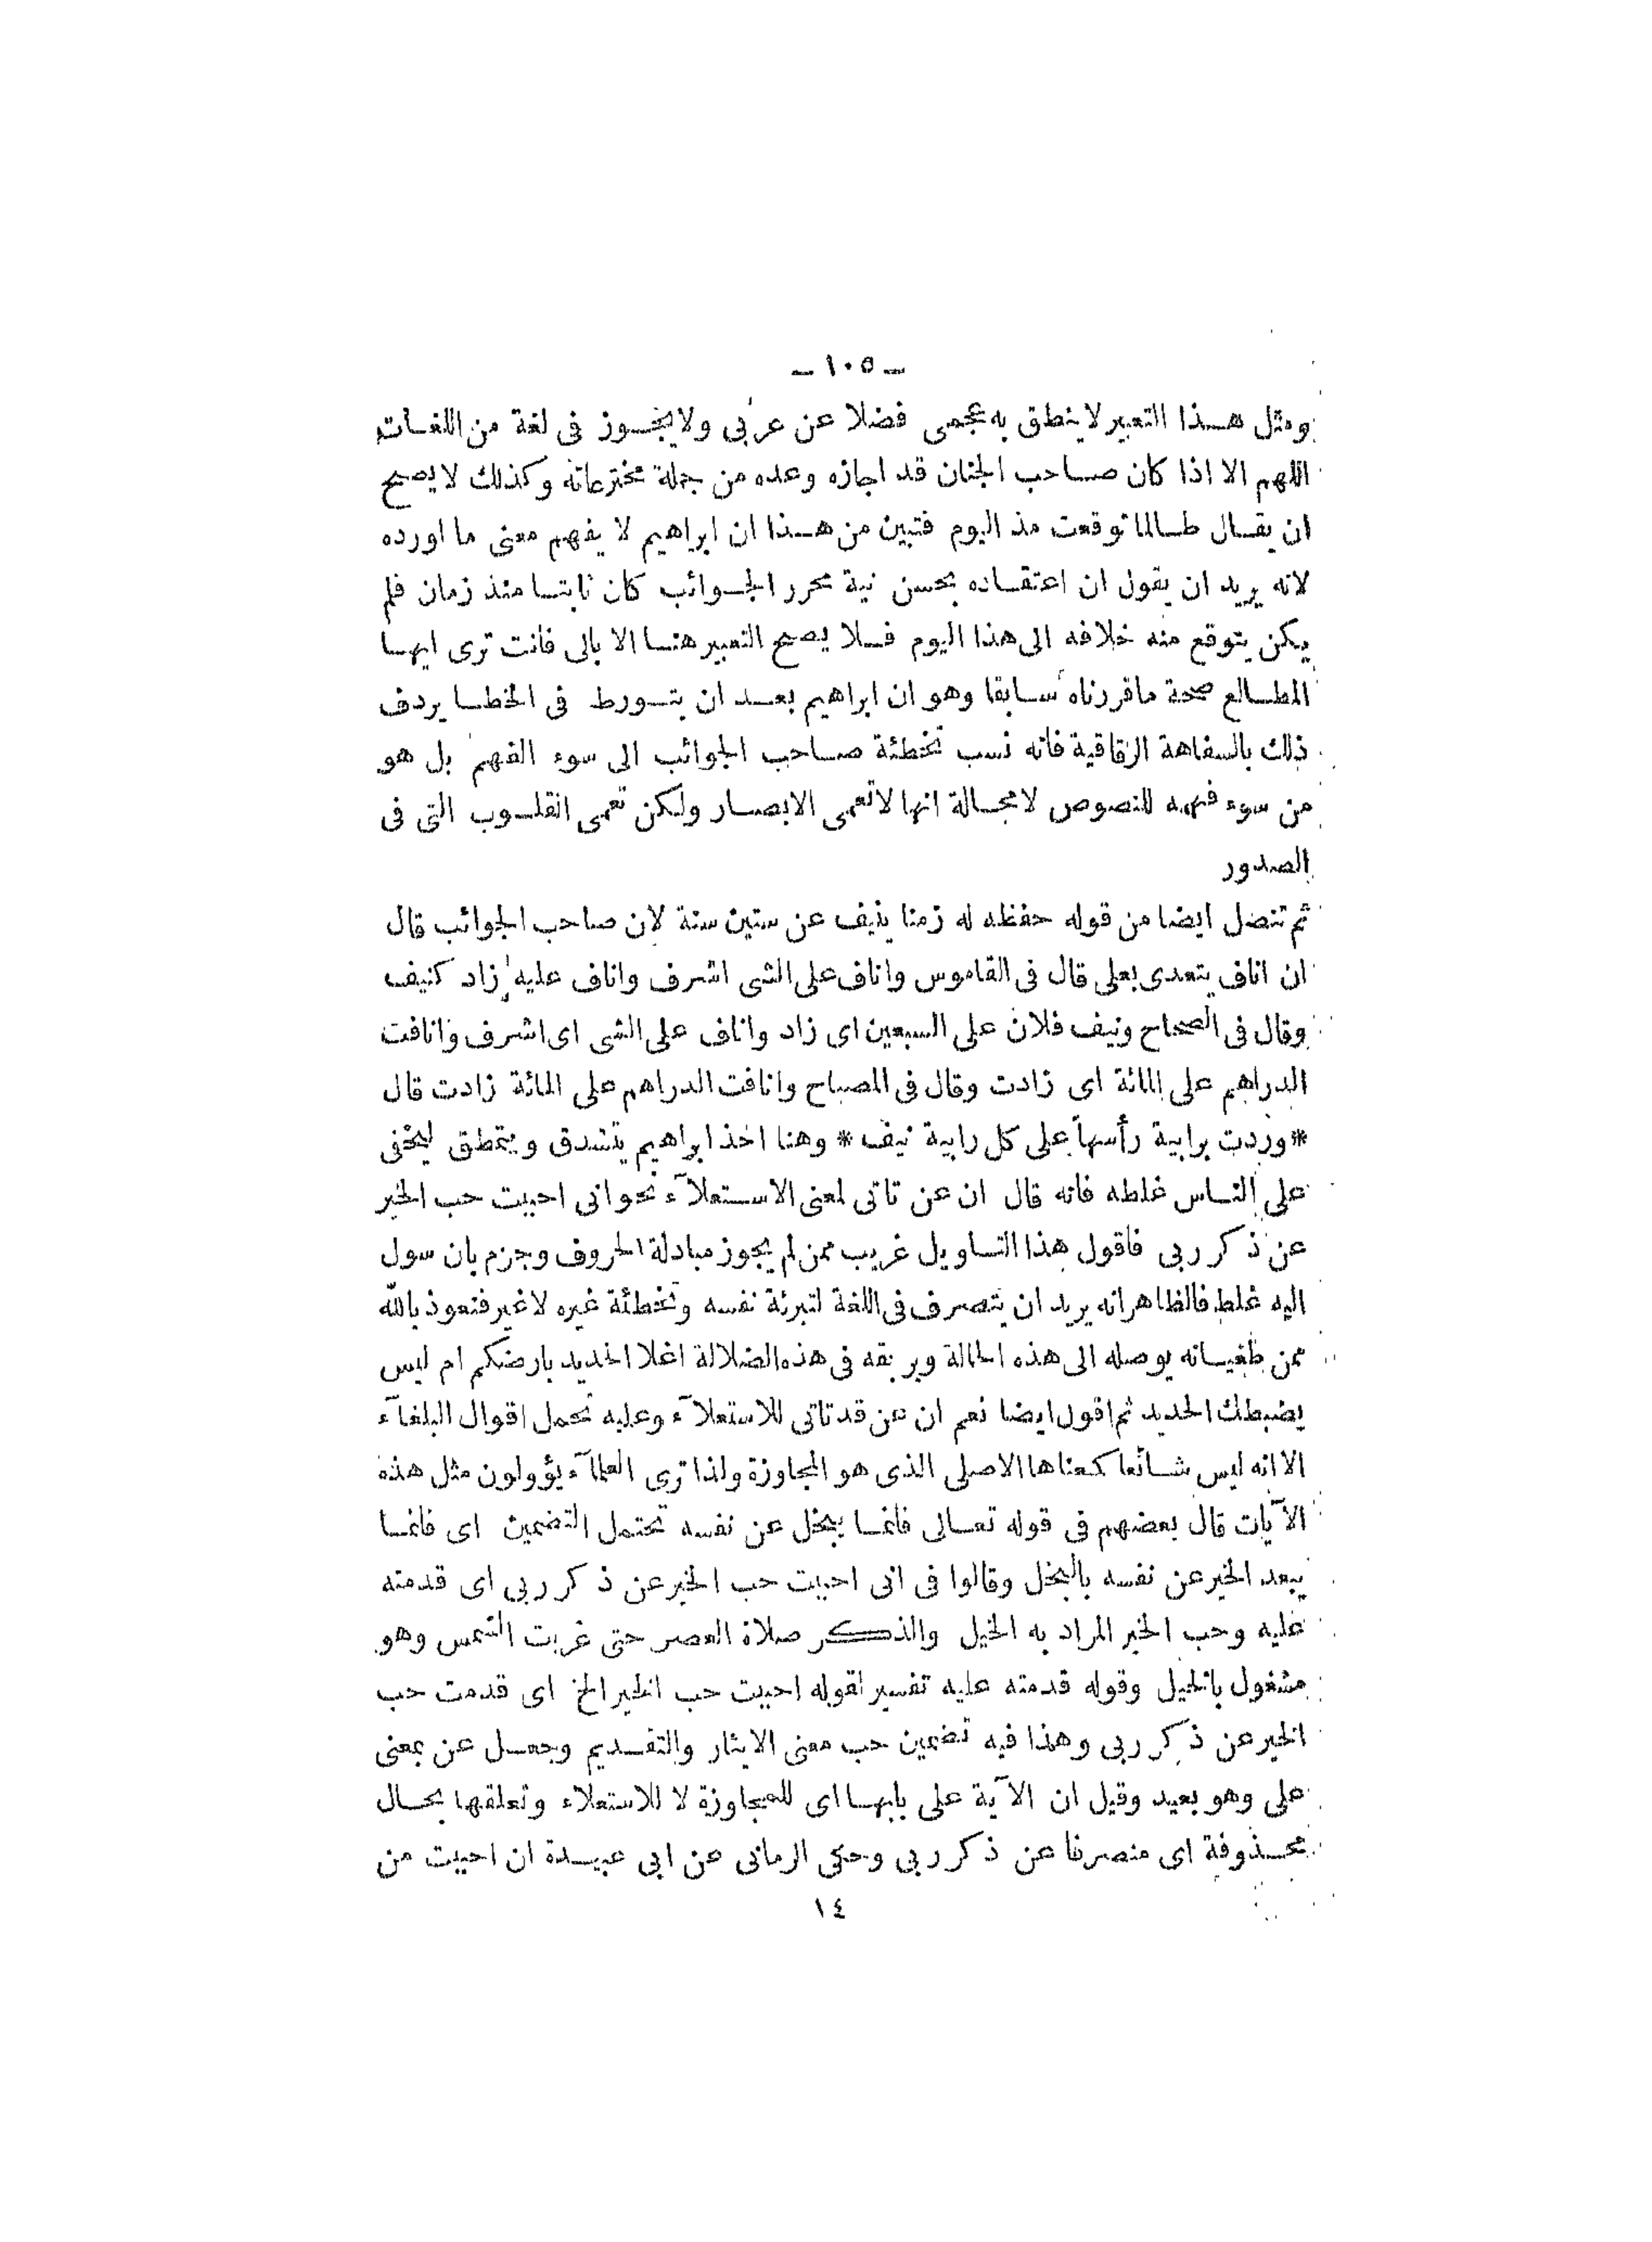 ـ ١٠٥ ـ
ومثل هــذا التعبير لا ينطق به عجمى فضلا عن عربى ولا يجــوز فى لغة من اللغــات
اللهم الا اذا كان صــاحب الجنان قد اجازه وعده من جملة مخترعاته وكذلك لا يصح
ان يقــال طــالما توقعت مذ اليوم فتبين من هــذا ان ابراهيم لا يفهم معنى ما اورده
لانه يريد ان يقول ان اعتقــاده بحسن نية محرر الجــوائب كان ثابتــا منذ زمان فلم
يكن يتوقع منه خلافه الى هذا اليوم فــلا يصح التعبير هنــا الا بالى فانت ترى ايهــا
المطــالع صحة ماقررناه ســابقا وهو ان ابراهيم بعــد ان يتــورط فى الخطــا يردف
ذلك بالسفاهة الزقاقية فانه نسب تخطئة صــاحب الجوائب الى سوء الفهم بل هو
من سوء فهمه للنصوص لا محــالة انها لا تعمى الابصــار ولكن تعمى القلــوب التى فى
الصدور
ثم تنصل ايضا من قوله حفظه له زمنا ينيف عن ستين سنة لان صاحب الجوائب قال
ان اناف يتعدى بعلى قال فى القاموس واناف على الشى اشرف واناف عليه زاد كنيف
وقال فى الصحاح ونيف فلان على السبعين اى زاد واناف على الشى اى اشرف وانافت
الدراهم على المائة اى زادت وقال فى المصباح وانافت الدراهم على المائة زادت قال
* وردت برابية رأسها على كل رابية نيف * وهنا اخذ ابراهيم يتشدق ويتمطق ليخفى
على النــاس غلطه فانه قال ان عن تاتى لمعنى الاســتعلآء نحو انى احببت حب الخير
عن ذكر ربى فاقول هذا التــاويل غريب ممن لم يجوز مبادلة الحروف وجزم بان سول
اليه غلط فالظاهر انه يريد ان يتصرف فى اللغة لتبرئة نفسه وتخطئة غيره لا غير فنعوذ بالله
ممن طغيــانه يوصله الى هذه الحالة ويربقه فى هذه الضلالة اغلا الحديد بارضكم ام ليس
يضبطك الحديد ثم اقول ايضا نعم ان عن قد تاتى للاستعلآء وعليه تحمل اقوال البلغآء
الا انه ليس شــائعا كمعناها الاصلى الذى هو المجاوزة ولذا ترى العلمآء يؤولون مثل هذه
الآيات قال بعضهم فى قوله تعــالى فانمــا يبخل عن نفسه تحتمل التضمين اى فانمــا
يبعد الخير عن نفسه بالبخل وقالوا فى انى احببت حب الخير عن ذكر ربى اى قدمته
عليه وحب الخير المراد به الخيل والذكر صلاة العصر حتى غربت الشمس وهو
مشغول بالخيل وقوله قدمته عليه تفسير لقوله احببت حب الخير الخ اى قدمت حب
الخير عن ذكر ربى وهذا فيه تضمين حب معنى الايثار والتقــديم وجعــل عن بمعنى
على وهو بعيد وقيل ان الآية على بابهــا اى للمجاوزة لا للاستعلاء وتعلقها بحــال
محــذوفة اى منصرفا عن ذكر ربى وحكى الرمانى عن ابى عبيــدة ان احببت من
١٤